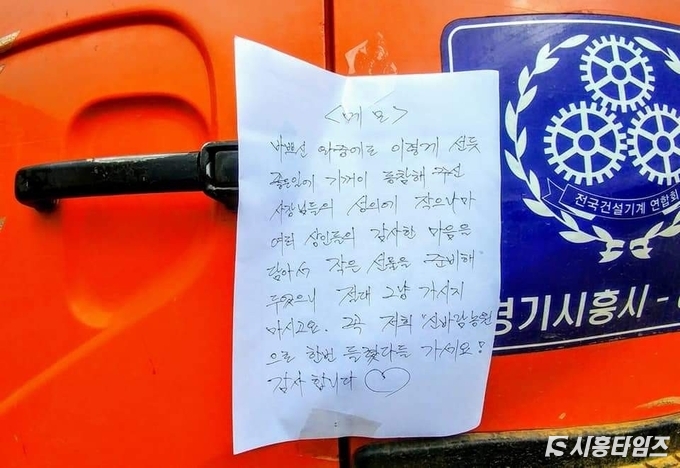 <메모>
바쁘신 와중에도 이렇게 선뜻
좋은일에 기꺼이 동참해 주신
사장님들의 성의에 작으나마
여러 상인들의 감사한 마음을
담아서 작은 선물을 준비해
두었으니 절대 그냥 가시지
마시고요. 꼭 저희 "신바람농원"
으로 한번 들렸다들 가세요!
감사합니다 ♡
전국건설기계 연합회
경기시흥시 -
시흥타임즈